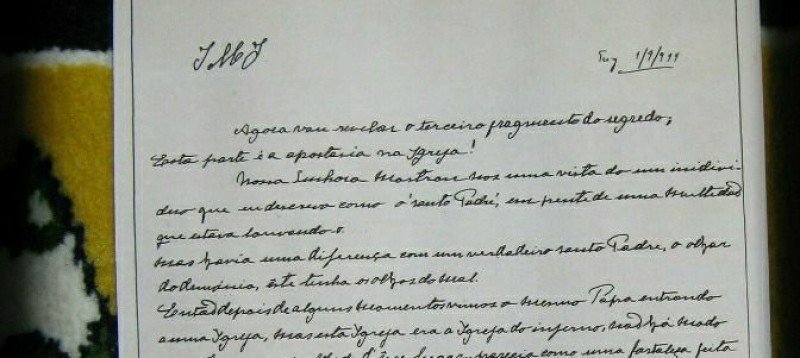 JMJ
Tuy 1/9/944
Agora vou revelar o terceiro fragmento do segredo;
Esta parte é a apostasia na Igreja!
Nossa Senhora mostrou nos uma vista do um individi-
duo que eu descrevo como o 'santo Padre', em frente de uma multidad
que estava louvando-o.
Mas havia uma diferença com um verdadeiro santo Padre, o olhar
do demonio, este tinha os olhos do mal.
Entad depois de alguns momentos vimos o mesmo Papa entrando
a uma Igreja, mas esta Igreja era a Igreja do inferno, nad há modo
lugar, parecia como uma fortaleza feita